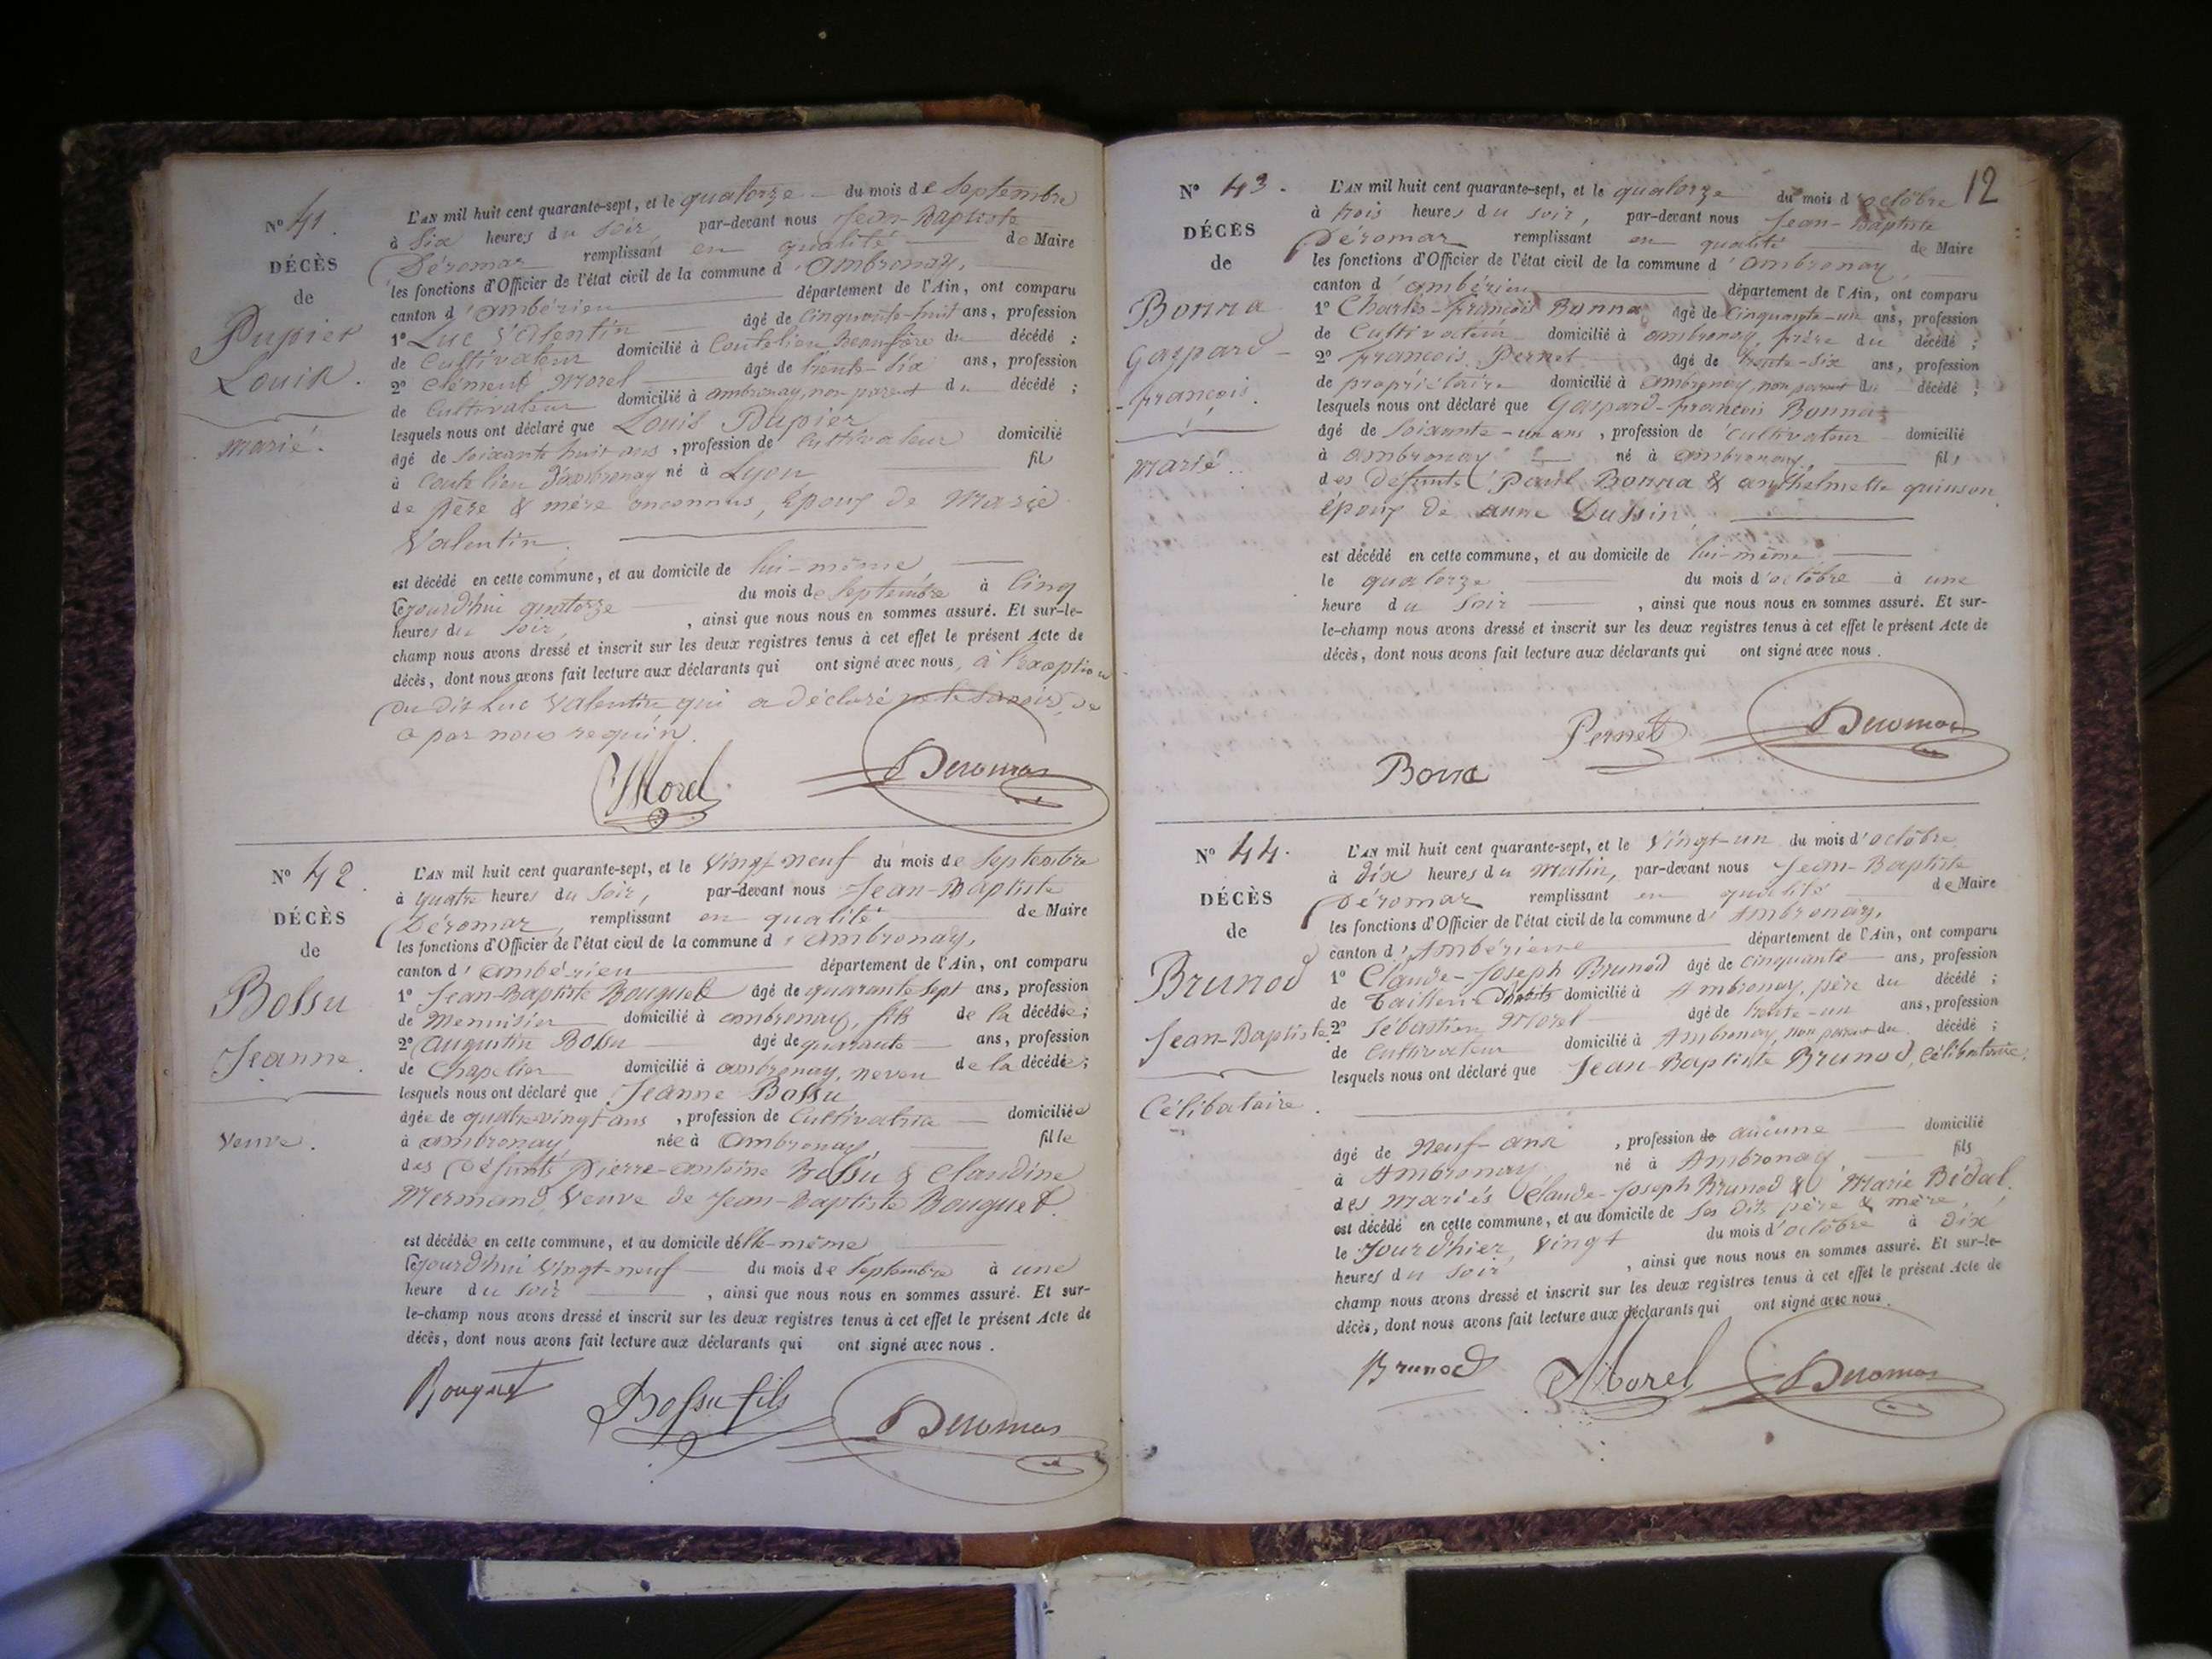 N° 41.
DÉCÈS
de
Dupier
Louis.
marié.
L'AN mil huit cent quarante-sept, et le quatorze du mois de Septembre
à Six heures du Soir, par-devant nous Jean-Baptiste
Déromas remplissant en qualité de Maire
les fonctions d'Officier de l'état civil de la commune d'ambronay,
canton d'ambérieu département de l'Ain, ont comparu
1° Luc Valentin âgé de Cinquante-huit ans, profession
de Cultivateur domicilié à Coutelieu Beaufrère du décédé ;
2° Clément Morel âgé de trente-six ans, profession
de Cultivateur domicilié à ambronay, non parent du décédé ;
lesquels nous ont déclaré que Louis Dupier
âgé de Soixante huit ans, profession de Cultivateur domicilié
à Coutelieu d'ambronay né à Lyon fils
de père & mère inconnus, époux de Marie
Valentin.
est décédé en cette commune, et au domicile de lui-même,
cejourd'hui quatorze du mois de Septembre à Cinq
heures du Soir, , ainsi que nous nous en sommes assuré. Et sur-le-
champ nous avons dressé et inscrit sur les deux registres tenus à cet effet le présent Acte de
décès, dont nous avons fait lecture aux déclarants qui ont signé avec nous, à l'exception
du dit Luc Valentin qui a déclaré ne le Savoir, de
ce par nous requis.
Morel Deromas
N° 42.
DÉCÈS
de
Bossu
Jeanne.
Veuve.
L'AN mil huit cent quarante-sept, et le Vingt-neuf du mois de Septembre
à quatre heures du Soir, par-devant nous Jean-Baptiste
Déromas, remplissant en qualité de Maire
les fonctions d'Officier de l'état civil de la commune d'ambronay,
canton d'ambérieu département de l'Ain, ont comparu
1° Jean-Baptiste Bouquet âgé de quarante sept ans, profession
de Menuisier domicilié à ambronay, fils de la décédée ;
2° Augustin Bossu âgé de quarante ans, profession
de Chapelier domicilié à ambronay, neveu de la décédée ;
lesquels nous ont déclaré que Jeanne Bossu
âgée de quatre-vingt ans, profession de Cultivatrice domiciliée
à ambronay née à Ambronay fille
des défunts Pierre-antoine Bossu & Claudine
Mermand, Veuve de Jean-Baptiste Bouquet.
est décédée en cette commune, et au domicile d'elle-même
cejourd'hui Vingt-neuf du mois de Septembre à une
heure du Soir , ainsi que nous nous en sommes assuré. Et sur-
le-champ nous avons dressé et inscrit sur les deux registres tenus à cet effet le présent Acte de
décès, dont nous avons fait lecture aux déclarants qui ont signé avec nous.
Bouquet Bossu fils Deromas
12
N° 43.
DÉCÈS
de
Bonna
Gaspard-
-françois.
Marié.
L'AN mil huit cent quarante-sept, et le quatorze du mois d'octobre
à trois heures du soir, par-devant nous Jean-Baptiste
Déromas remplissant en qualité de Maire
les fonctions d'Officier de l'état civil de la commune d'ambronay,
canton d'ambérieu département de l'Ain, ont comparu
1° Charles-françois Bonna âgé de Cinquante-un ans, profession
de Cultivateur domicilié à ambronay, frère du décédé ;
2° françois Pernet âgé de trente-six ans, profession
de propriétaire domicilié à ambronay, non parent du décédé ;
lesquels nous ont déclaré que Gaspard-françois Bonna
âgé de Soixante-un ans, profession de Cultivateur domicilié
à ambronay né à ambronay fils
des défunts Paul Bonna & anthelmette quinson
époux de anne Dussin,
est décédé en cette commune, et au domicile de lui-même
le quatorze du mois d'octobre à une
heure du Soir , ainsi que nous nous en sommes assuré. Et sur-
le-champ nous avons dressé et inscrit sur les deux registres tenus à cet effet le présent Acte de
décès, dont nous avons fait lecture aux déclarants qui ont signé avec nous.
Bonna Pernet Deromas
N° 44.
DÉCÈS
de
Brunod
Jean-Baptiste.
Célibataire.
L'AN mil huit cent quarante-sept, et le Vingt-un du mois d'octobre
à dix heures du Matin, par-devant nous Jean-Baptiste
Déromas remplissant en qualité de Maire
les fonctions d'Officier de l'état civil de la commune d'Ambronay,
canton d'Ambérieux département de l'Ain, ont comparu
1° Claude-Joseph Brunod âgé de Cinquante ans, profession
de Tailleur d'habits domicilié à Ambronay, père du décédé ;
2° Sébastien Morel âgé de trente-un ans, profession
de Cultivateur domicilié à Ambronay, non parent du décédé ;
lesquels nous ont déclaré que Jean-Baptiste Brunod, Célibataire,
âgé de Neuf-ans , profession de aucune domicilié
à Ambronay né à Ambronay fils
des Mariés Claude-Joseph Brunod & Marie Bidal.
est décédé en cette commune, et au domicile de Ses dits père & mère,
le Jour d'hier, Vingt du mois d'octobre à dix
heures du Soir , ainsi que nous nous en sommes assuré. Et sur-le-
champ nous avons dressé et inscrit sur les deux registres tenus à cet effet le présent Acte de
décès, dont nous avons fait lecture aux déclarants qui ont signé avec nous.
Brunod Morel Deromas